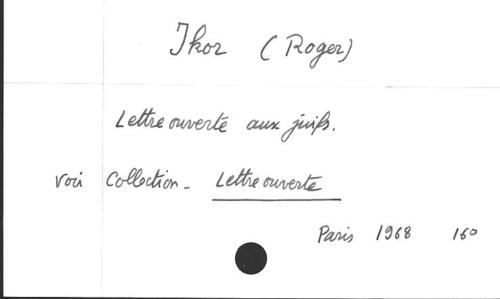 Ikor (Roger)
Lettre ouverte aux juifs.
voir Collection - Lettre ouverte
Paris 1968 16°